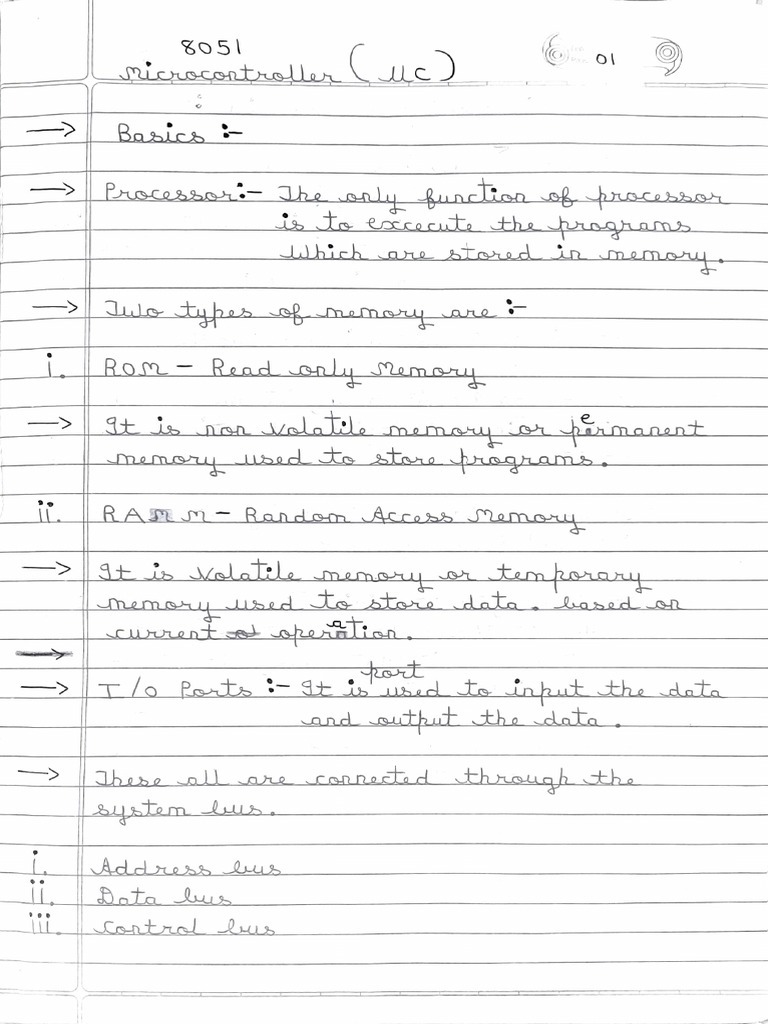 8051
Microcontroller (µc)
01
:
→ Basics :-
→ Processor:- The only function of processor
is to excecute the programs
which are stored in memory.
→ Two types of memory are :-
i. ROM - Read only Memory
→ It is non volatile memory or permanent
memory used to store programs.
ii. RAM - Random Access Memory
→ It is volatile memory or temporary
memory used to store data. based on
current operation.
→
→ I/O Ports :- It port is used to input the data
and output the data.
→ These all are connected through the
system bus.
i. Address bus
ii. Data bus
iii. Control bus